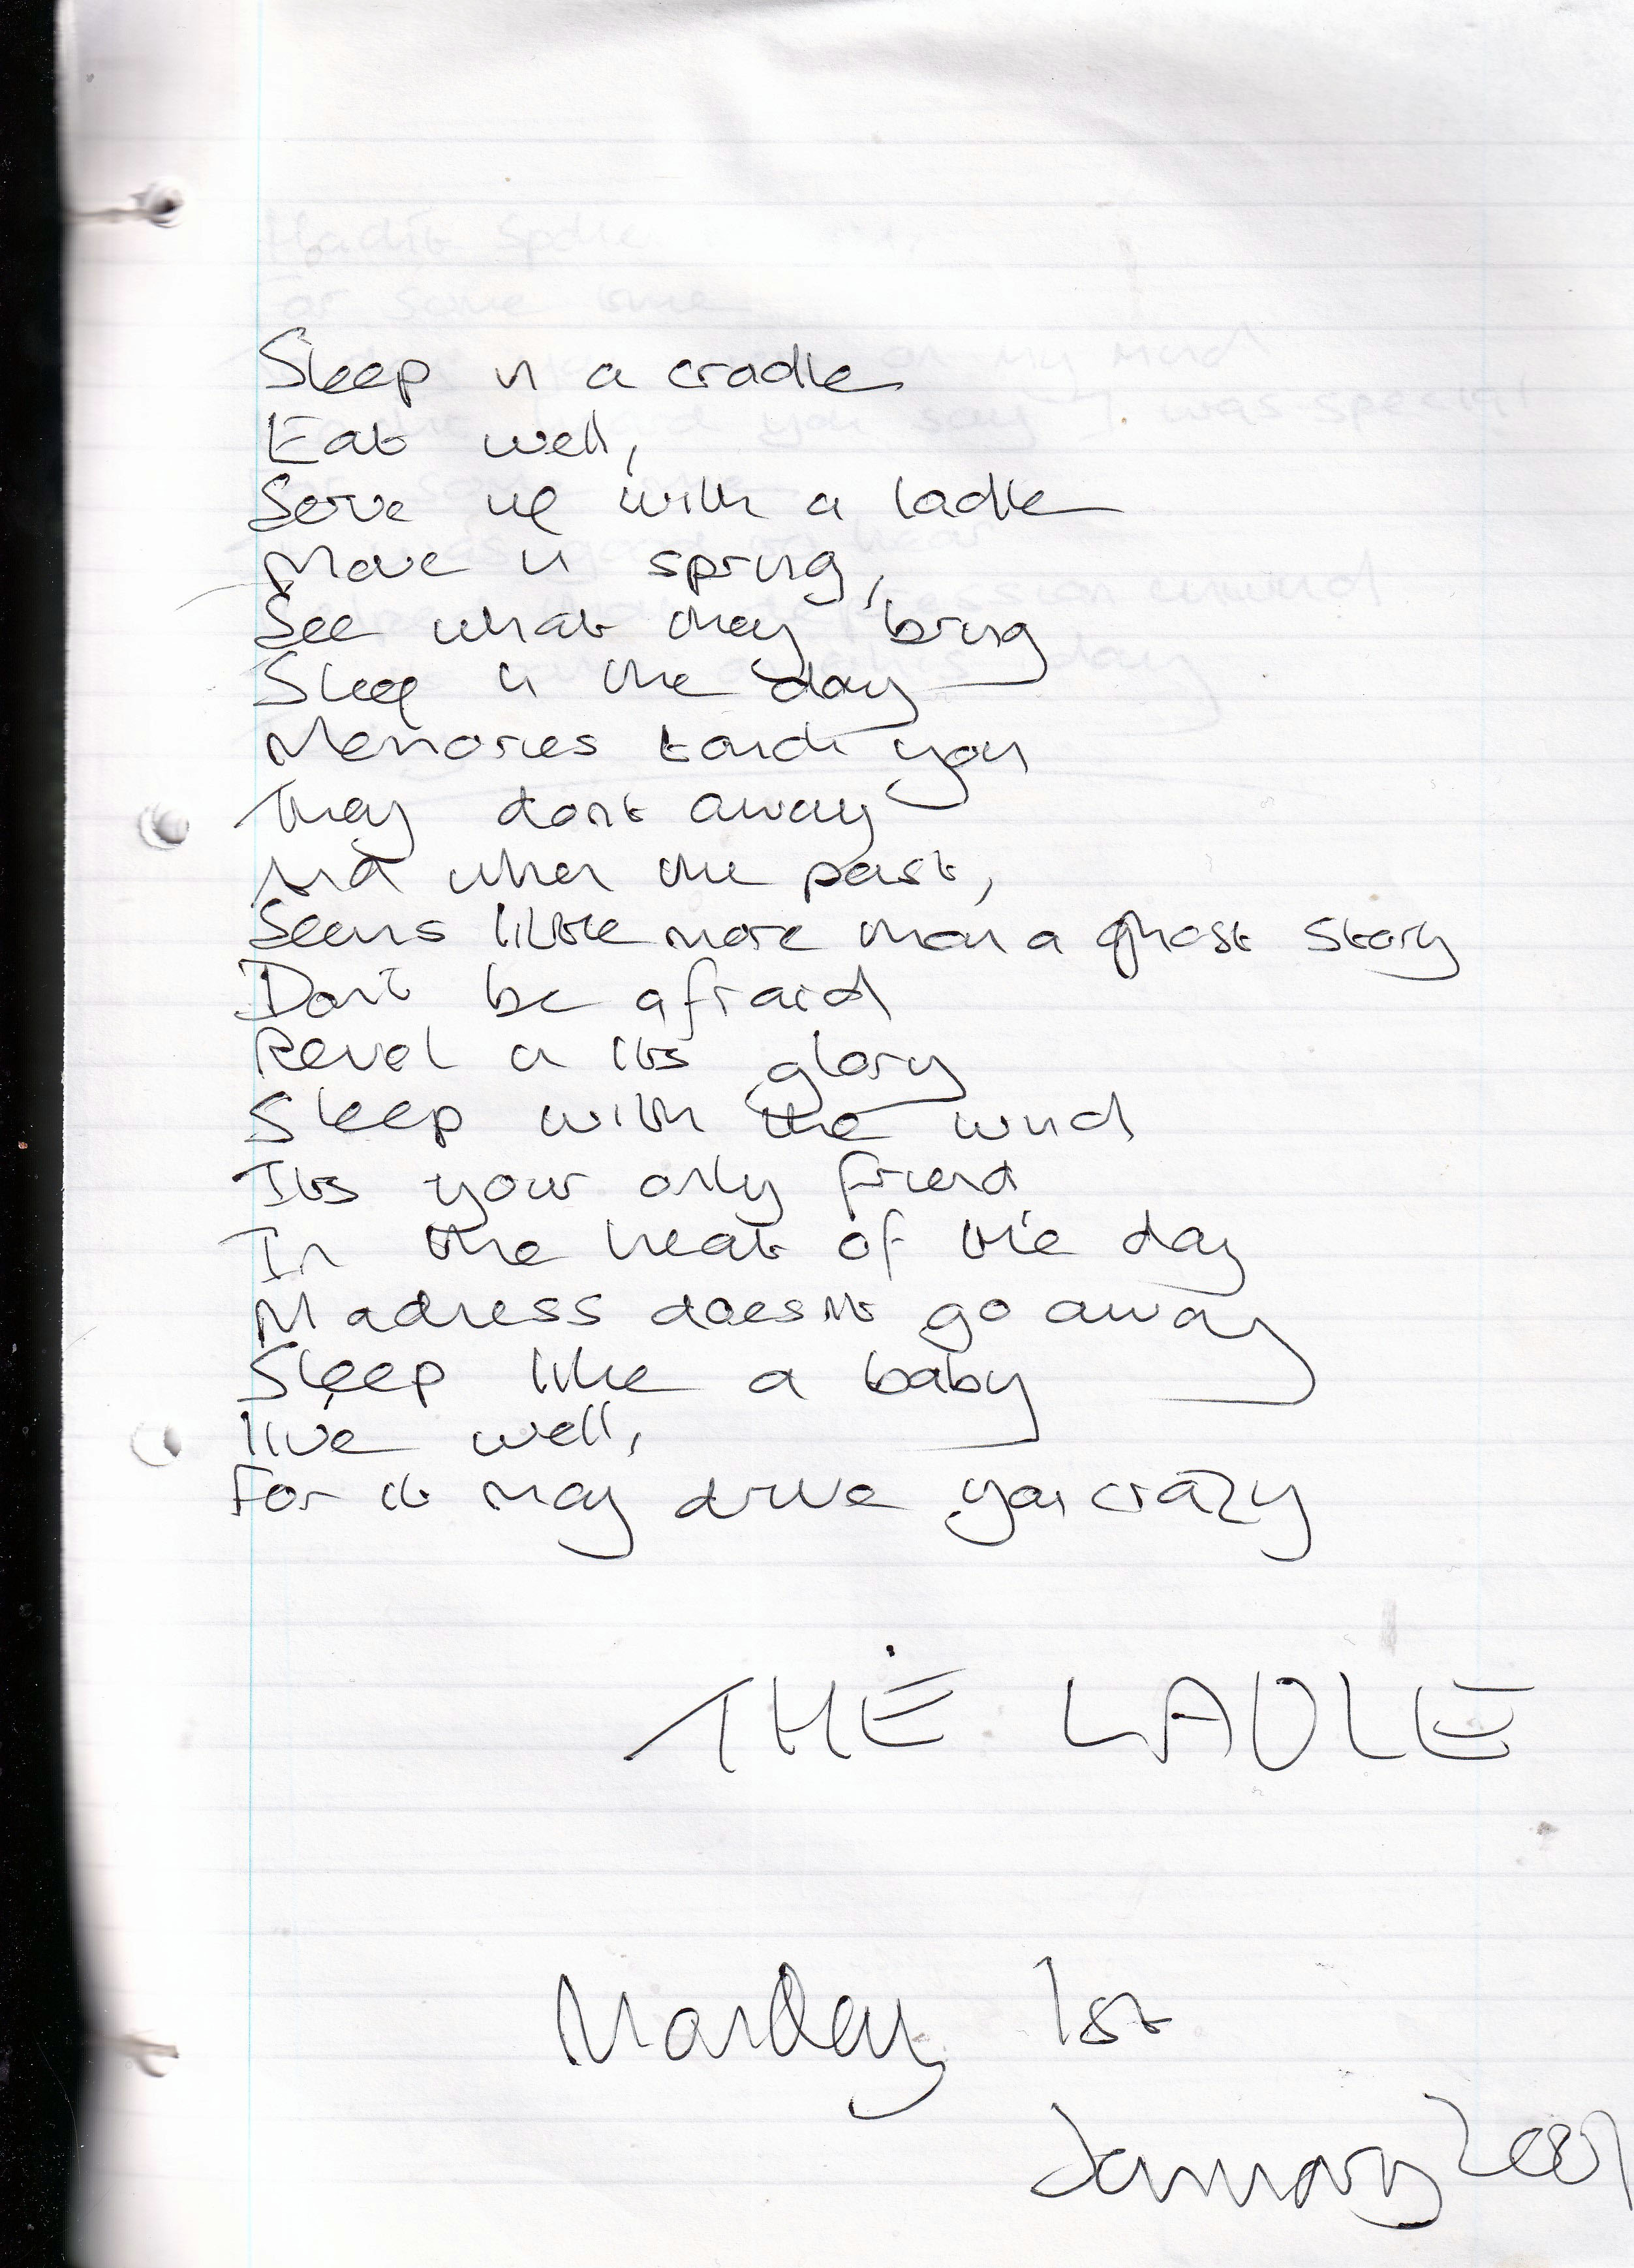 Sleep in a cradle
Eat well,
Serve up with a ladle
Move in spring,
See what they bring
Sleep in the day
Memories touch you
They dont away
And when the past,
Seems little more than a ghost story
Don't be afraid
Revel in its glory
Sleep with the wind
Its your only friend
In the heat of the day
Madness doesnt go away
Sleep like a baby
live well,
For it may drive you crazy
THE LADLE
Monday 1st
January 2001